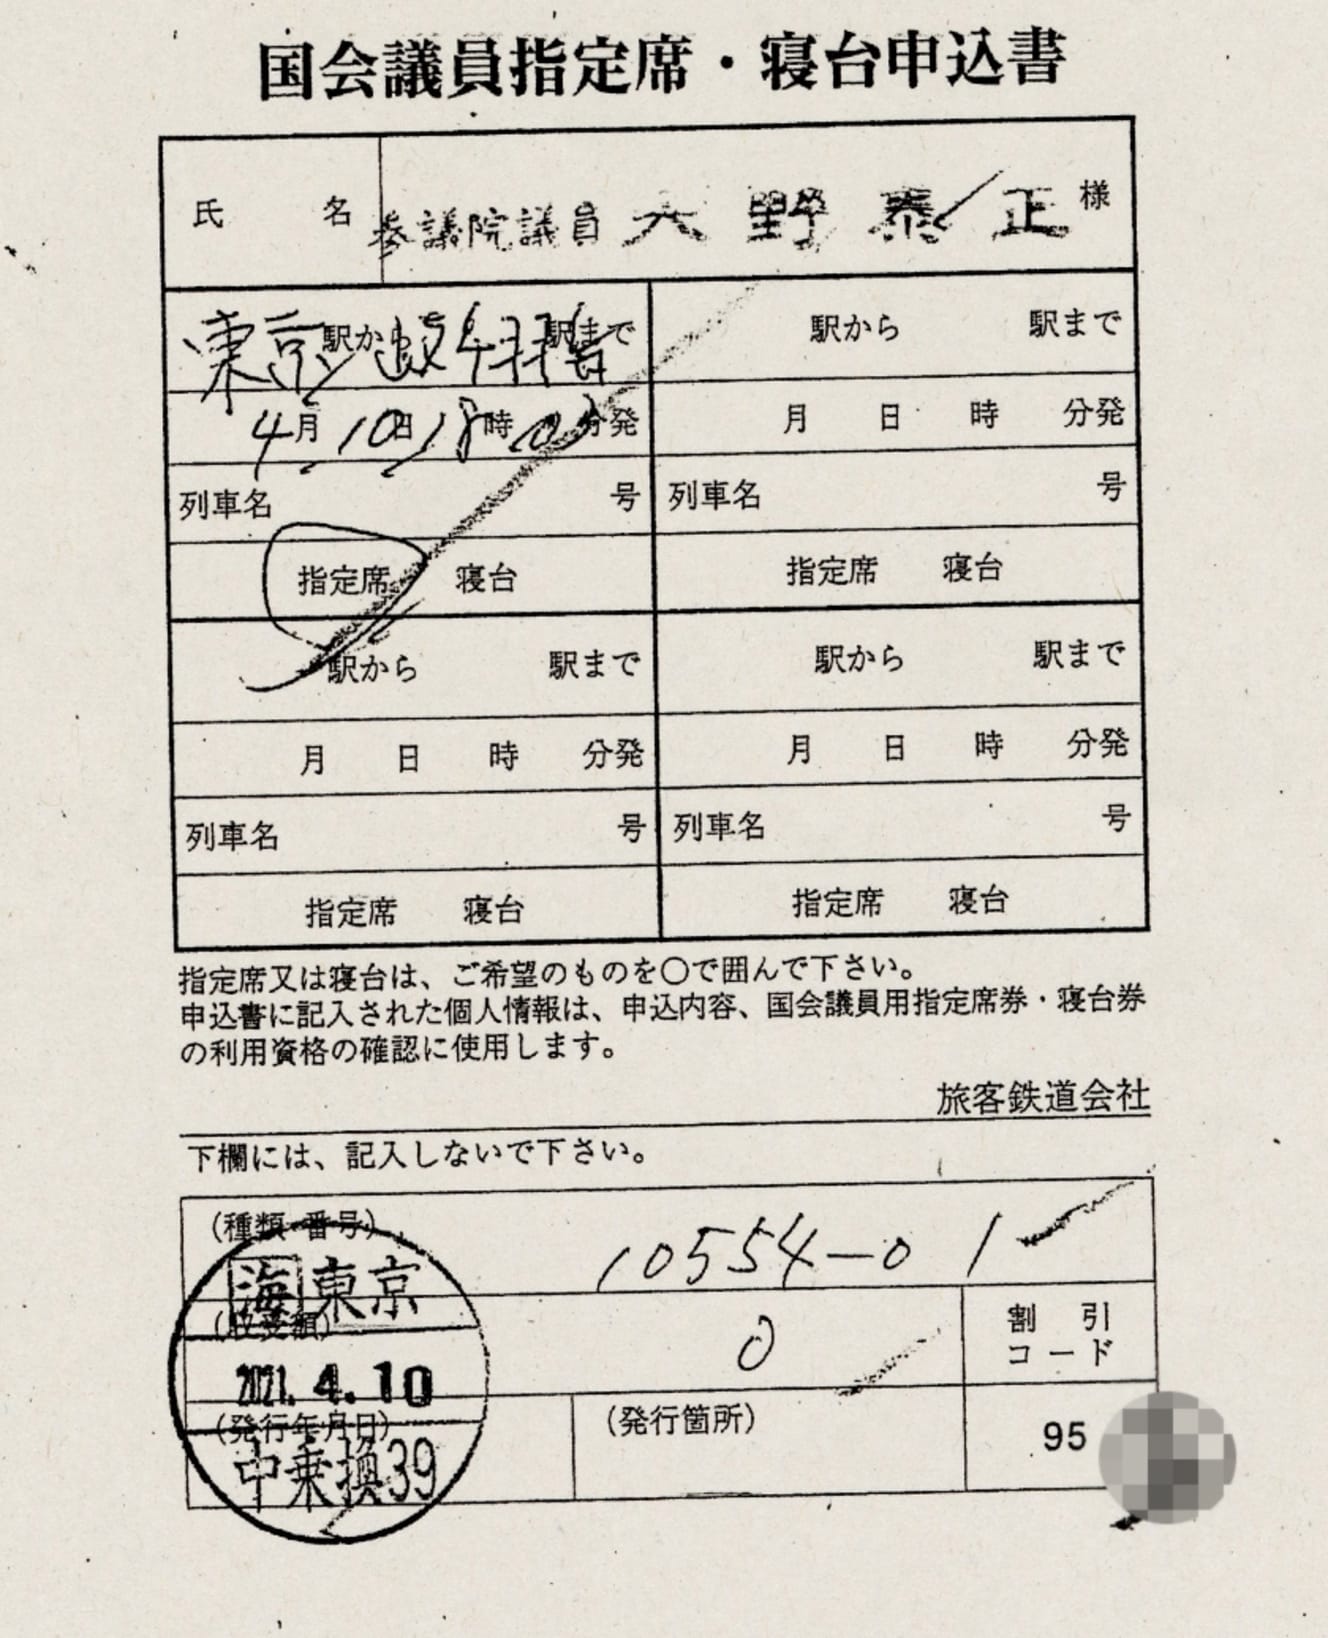 国会議員指定席・寝台申込書
氏名 参議院議員 大野泰正 様
東京駅から 駅まで 駅から 駅まで
4月10日18時 分発 月 日 時 分発
列車名 号 列車名 号
指定席 寝台 指定席 寝台
駅から 駅まで 駅から 駅まで
月 日 時 分発 月 日 時 分発
列車名 号 列車名 号
指定席 寝台 指定席 寝台
指定席又は寝台は、ご希望のものを○で囲んで下さい。
申込書に記入された個人情報は、申込内容、国会議員用指定席券・寝台券
の利用資格の確認に使用します。
旅客鉄道会社
下欄には、記入しないで下さい。
(種類・番号) 10554-01
海 東京
(収受額) 0 割引
コード
2021.4.10
(発行年月日) (発行箇所) 95
中乗換39